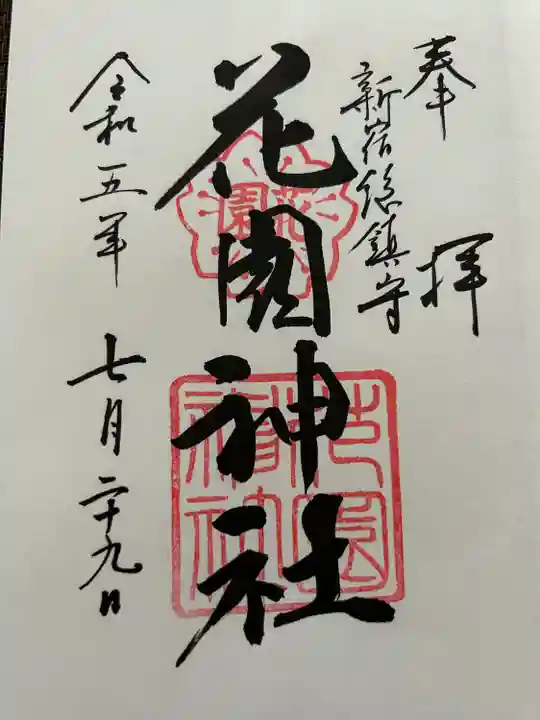 奉拝
新宿総鎮守
花園神社
令和五年 七月二十九日
花園
花園神社